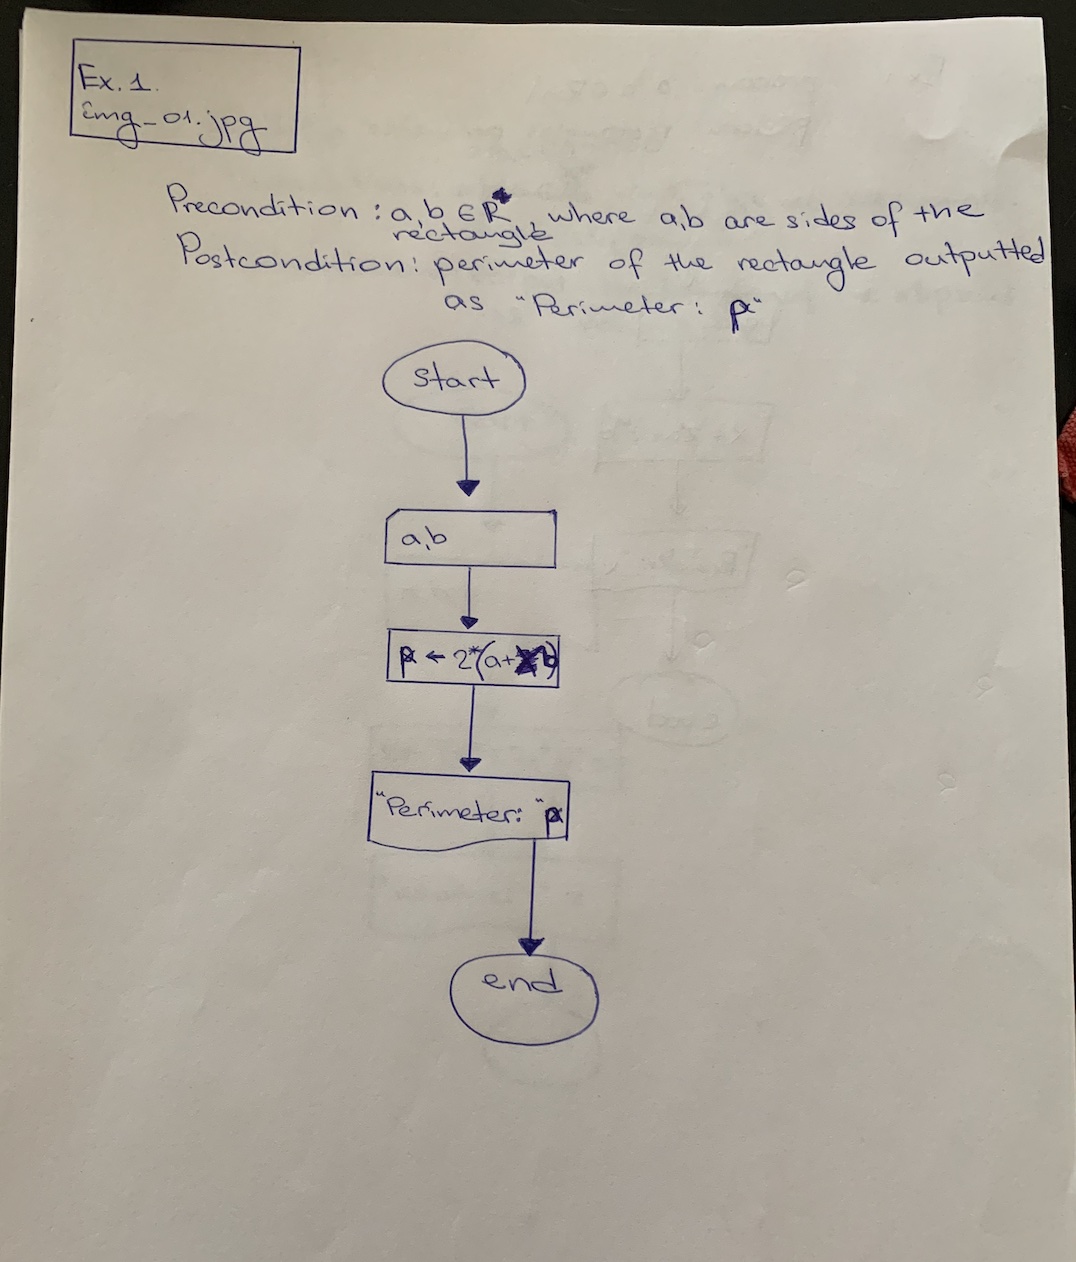 Ex. 1.
img_01.jpg
Precondition: a,b ∈ R⁺, where a,b are sides of the
rectangle
Postcondition: perimeter of the rectangle outputted
as "Perimeter: p"
start
a,b
p ← 2*(a+b)
"Perimeter: "p
end